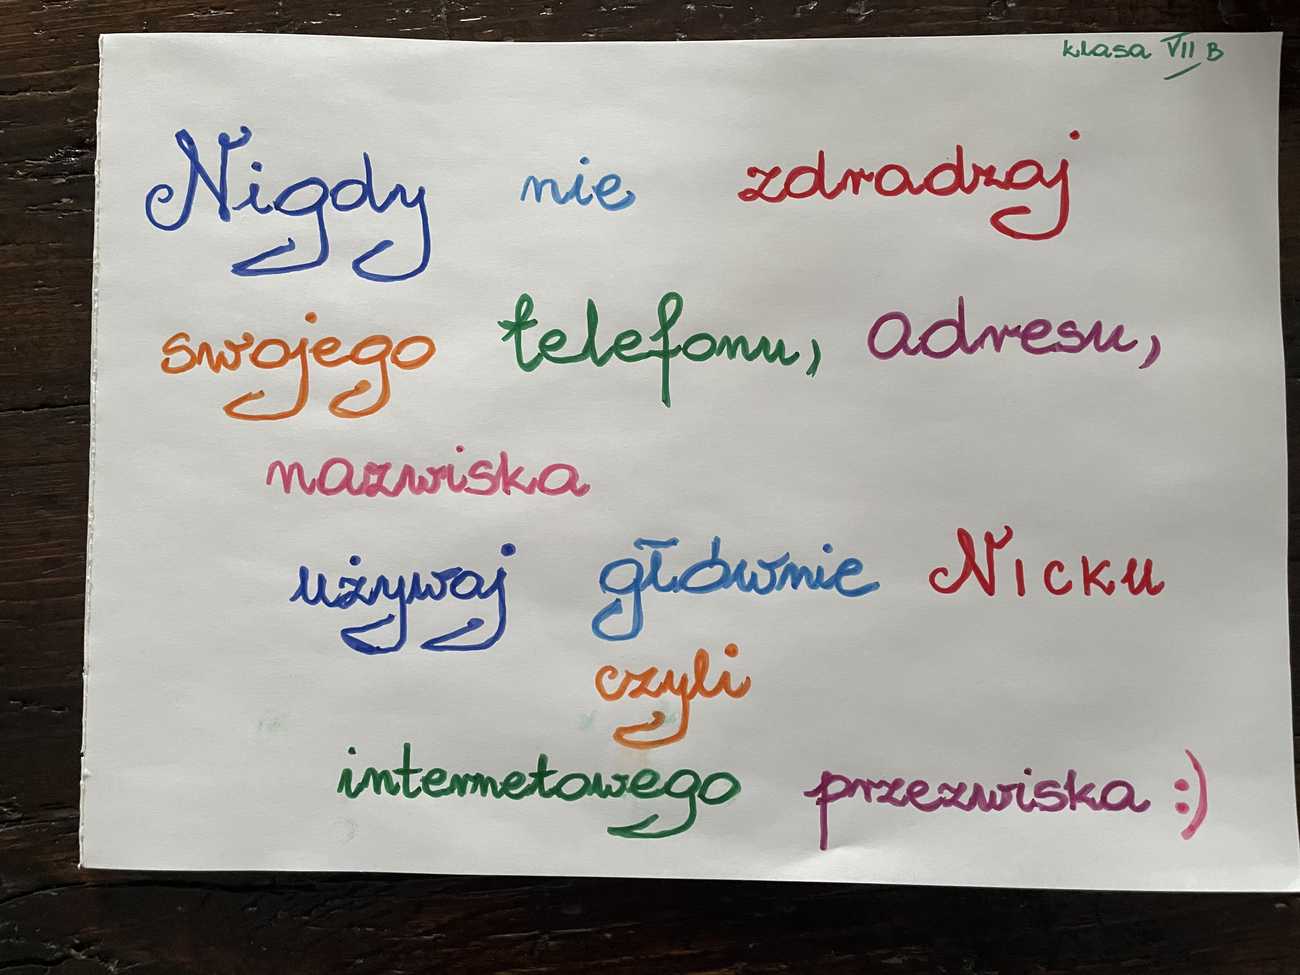 klasa VII B
Nigdy nie zdradzaj
swojego telefonu, adresu,
nazwiska
używaj głównie Nicku
czyli
internetowego przezwiska :)